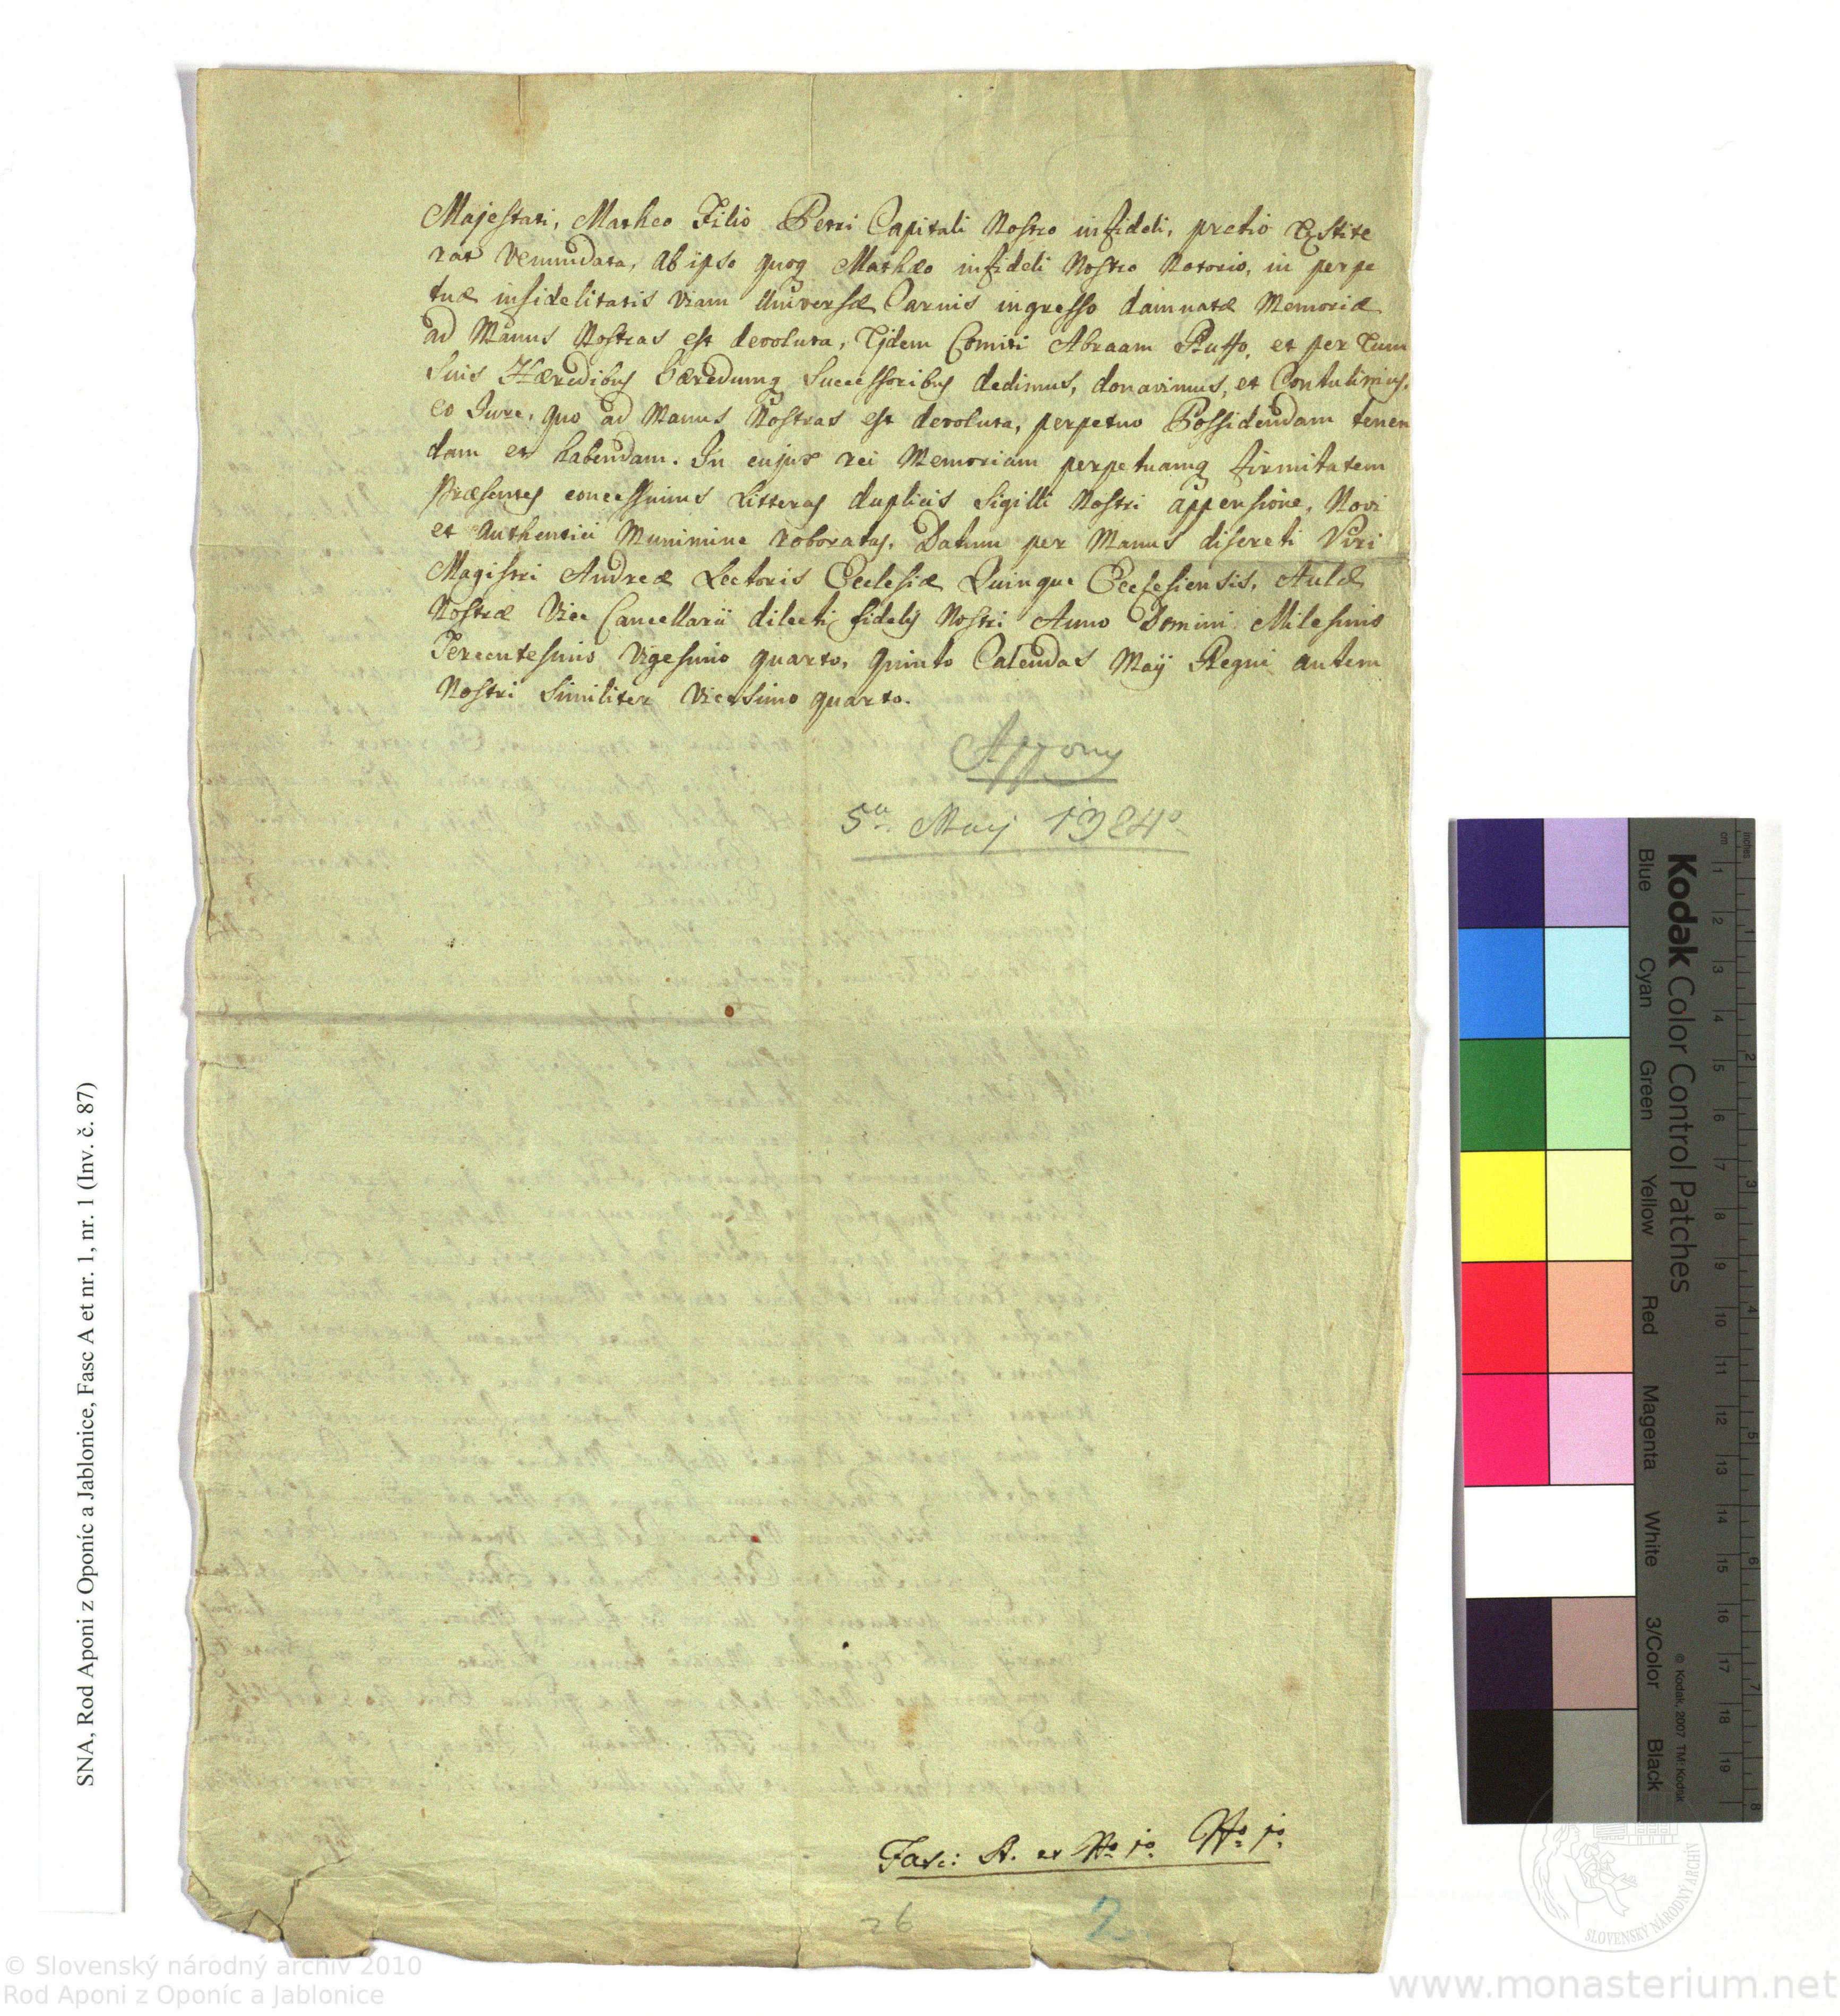 Majestati, Matheo Filio Petri Capitali Nostro infideli, pretio Exstite
rat Venundata, ab ipso quoq Mathæo infideli Nostro Notorio, in perpe
tuæ infidelitatis Viam Universæ Carnis ingresso damnatæ Memoriæ
ad Manus Nostras est devoluta, Ejdem Comiti Abraam Ruffo, et per Eum
Suis Hæredibus hæredumq Successoribus dedimus, donavimus, et Contulimus,
eo Jure, quo ad Manus Nostras est devoluta, perpetuo Possidendam tenen
dam et habendam. In cujus rei Memoriam perpetuamq firmitatem
præsentes concessimus Litteras duplicis Sigilli Nostri appensione, Novi
et Authentici Munimine roboratas. Datum per Manus discreti Viri
Magistri Andreæ Lectoris Ecclesiæ Quinque Ecclesiensis, Aulæ
Nostræ Vice Cancellarii dilecti fidelis Nostri Anno Domini Milesimo
Tercentesimo Vigesimo quarto, quinto Calendas Maij Regni autem
Nostri Similiter Vicesimo quarto.
Appony
5a Maij 1324o
Fasci: A. et No 1o. No 1o.
26
2
SNA, Rod Aponi z Oponíc a Jablonice, Fasc A et nr. 1, nr. 1 (Inv. č. 87)
Kodak Color Control Patches
Blue Cyan Green Yellow Red Magenta White 3/Color Black
© Kodak, 2007 TM: Kodak
cm 1 2 3 4 5 6 7 8 9 10 11 12 13 14 15 16 17 18 19
inches 1 2 3 4 5 6 7 8
SLOVENSKÝ NÁRODNÝ ARCHÍV
© Slovenský národný archív 2010
Rod Aponi z Oponíc a Jablonice
www.monasterium.net